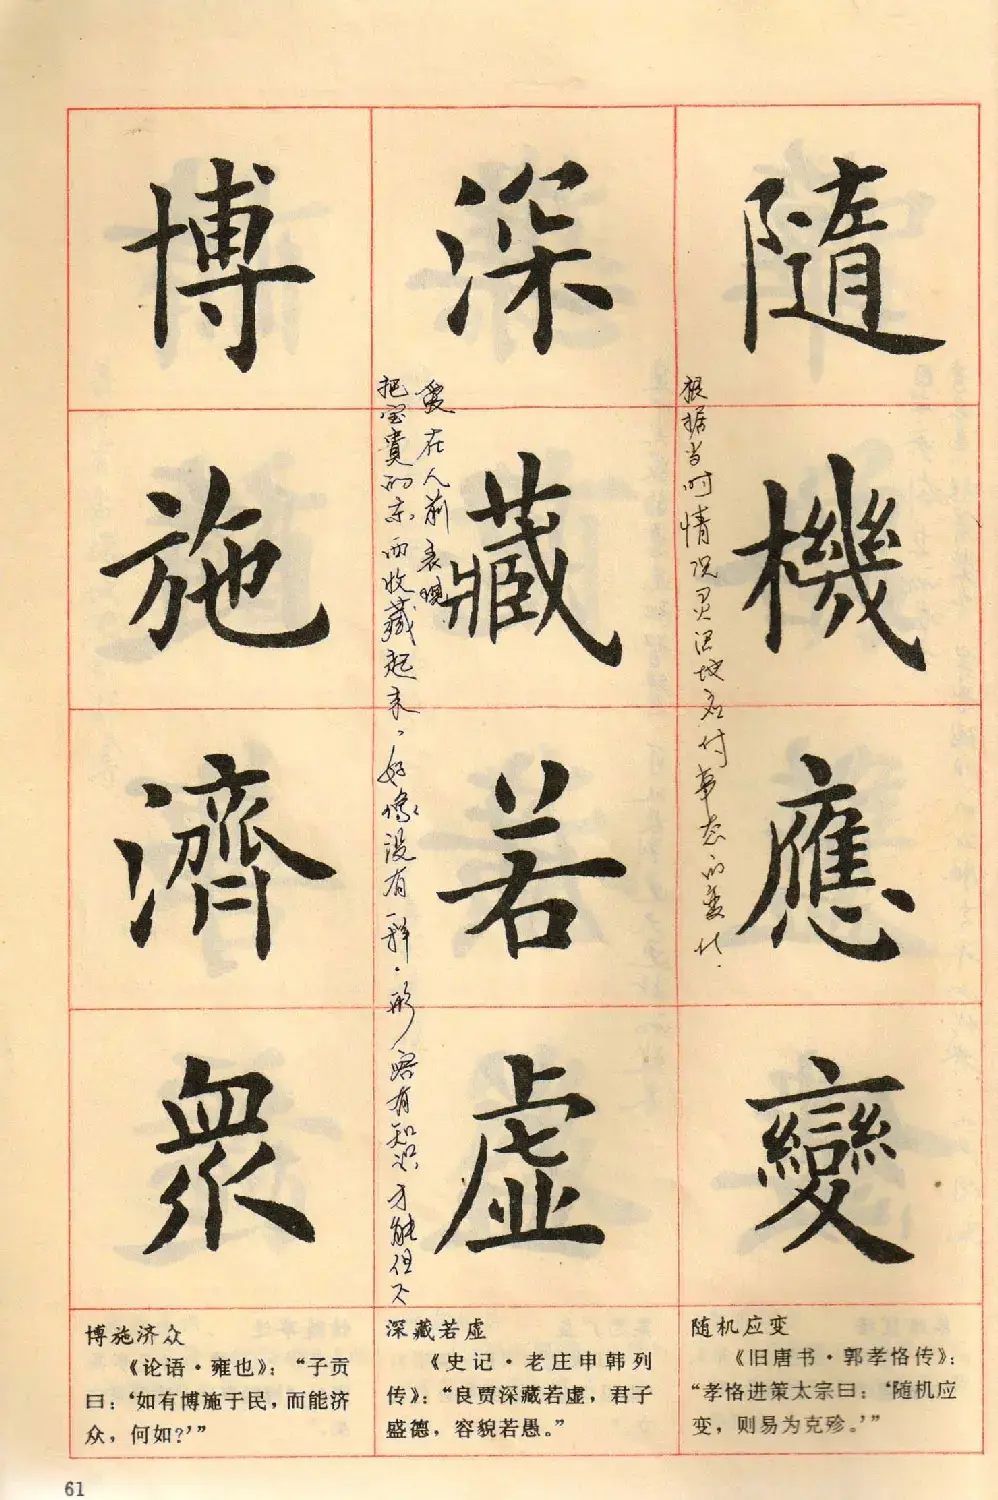 隨機應變
根据当时情况灵活地应付事态的变化.
深藏若虛
把宝贵的东西收藏起来，好像没有一样.形容有知识才能但不
爱在人前表现
博施濟眾
随机应变
《旧唐书·郭孝恪传》：
“孝恪进策太宗曰：‘随机应
变，则易为克殄。’”
深藏若虚
《史记·老庄申韩列
传》：“良贾深藏若虚，君子
盛德，容貌若愚。”
博施济众
《论语·雍也》：“子贡
曰：‘如有博施于民，而能济
众，何如？’”
61